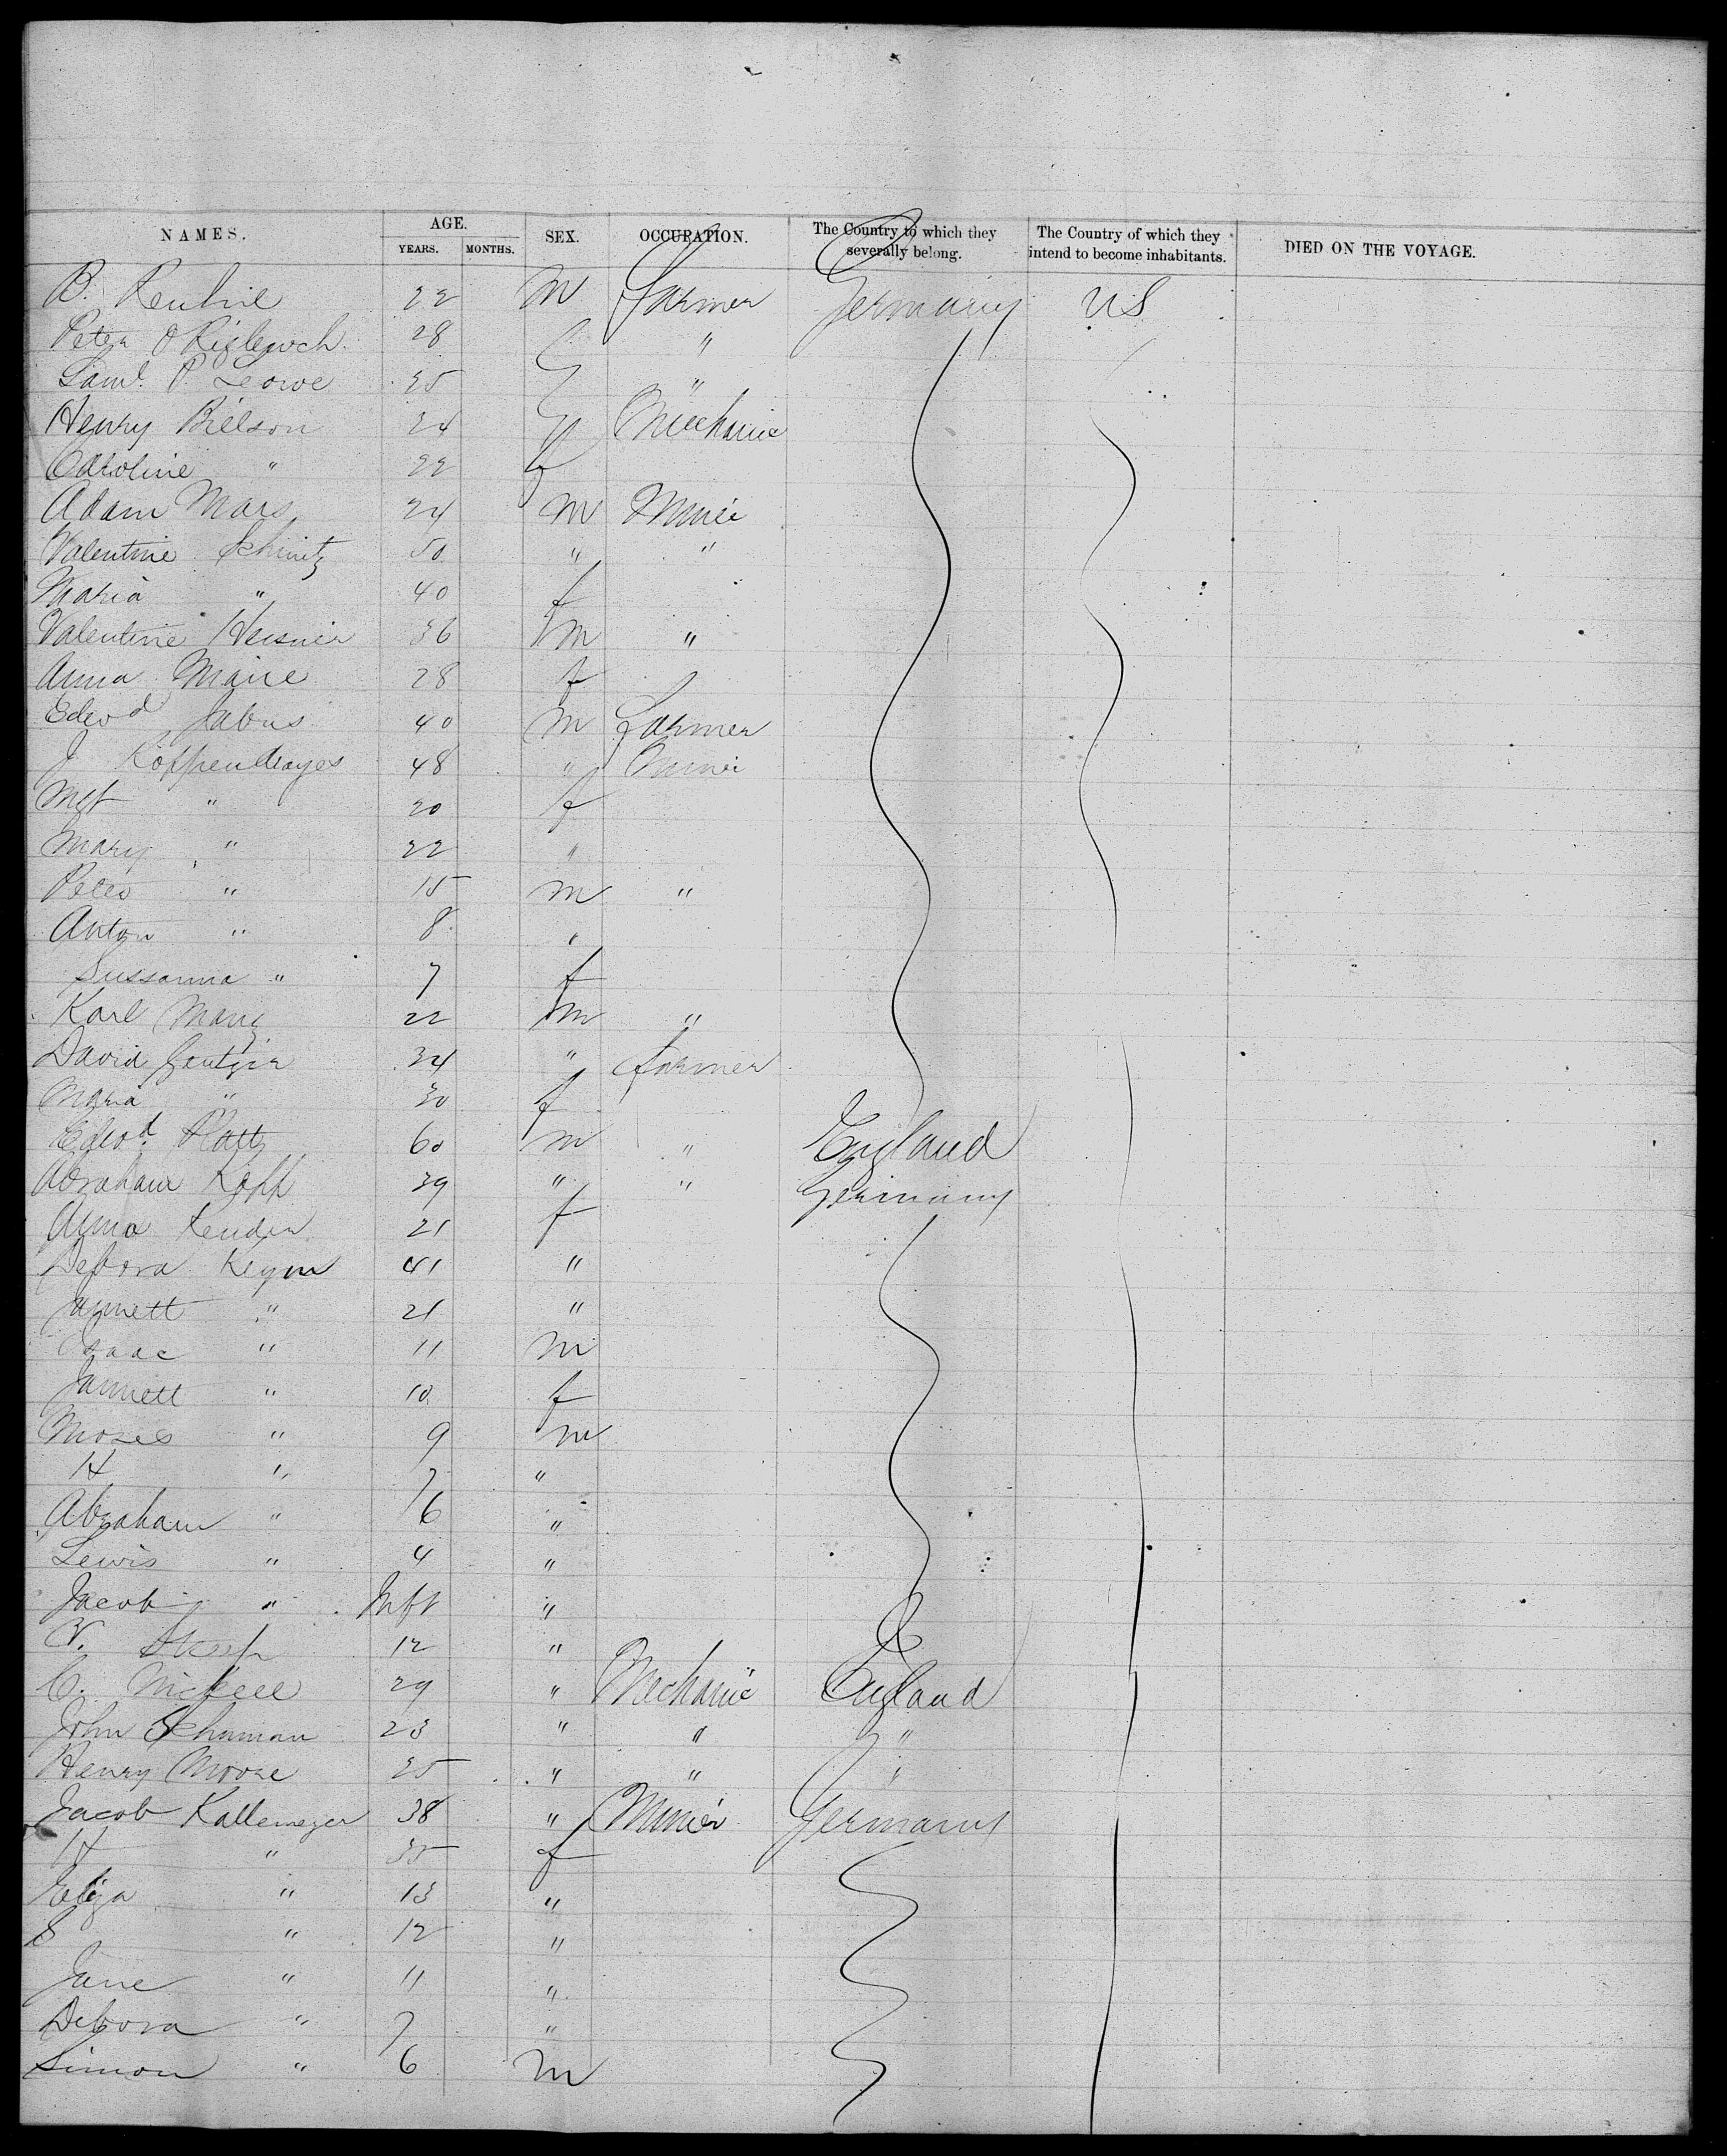 NAMES. AGE. YEARS. MONTHS. SEX. OCCUPATION. The Country to which they severally belong. The Country of which they intend to become inhabitants. DIED ON THE VOYAGE.
B. 22 m Farmer Germany US
Peter 28 "
Saml. P. Leowe 25 "
Henry Bielson 24 Mechanic
Caroline " 22 f
Adam Mars 24 m Miner
Valentine Schmitz 50 " "
Maria " 40 f
Valentine Heisner 36 m "
Anna Marie 28 f
Edwd Jabus 40 m Farmer
J Koppendrayes 48 " Miner
Mgt " 20 f
Mary " 22 "
Peter " 15 m "
Anton " 8 "
Sussanna " 7 f
Karl Mang 22 m "
David 34 " Farmer
Maria " 30 f
Edwd. Platz 60 m " England
Abraham Kopp 39 " " Germany
Anna 21 f
Debora Keym 41 "
Jannett " 21 "
Isaac " 11 m
Jannett " 10 f
Moses " 9 m
H " 7 "
Abraham " 6 "
Lewis " 4 "
Jacob " Inft "
12 "
C. Nickell 29 " Mechanic England
John Schuman 23 " " "
Henry Moore 25 " " "
Jacob Kallemeyer 38 " Miner Germany
H " 35 f
Eliza " 13 "
S " 12 "
Jane " 11 "
Debora " 7 "
Simon " 6 m